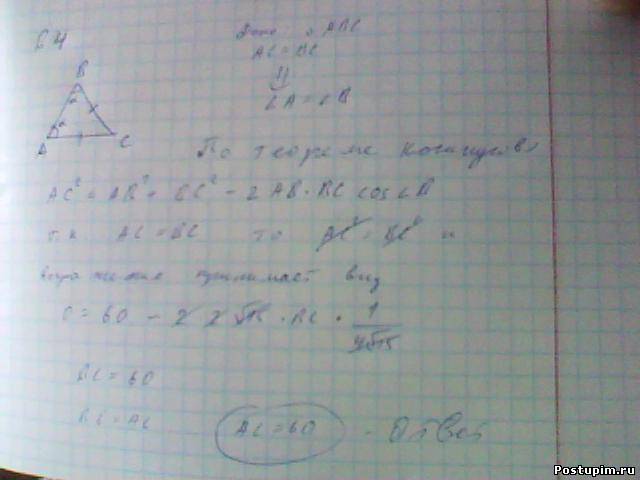 B4
Дано: △ ABC
AC = BC
⇓
∠A = ∠B
B
A
C
По теореме косинусов
AC² = AB² + BC² - 2 AB · BC cos∠B
т.к. AC = BC то AC² = BC² и
выражение принимает вид
0 = 60 - 2 · 2√15 · BC · 1/4√15
BC = 60
BC = AC
AC = 60 - Ответ
Postupim.ru